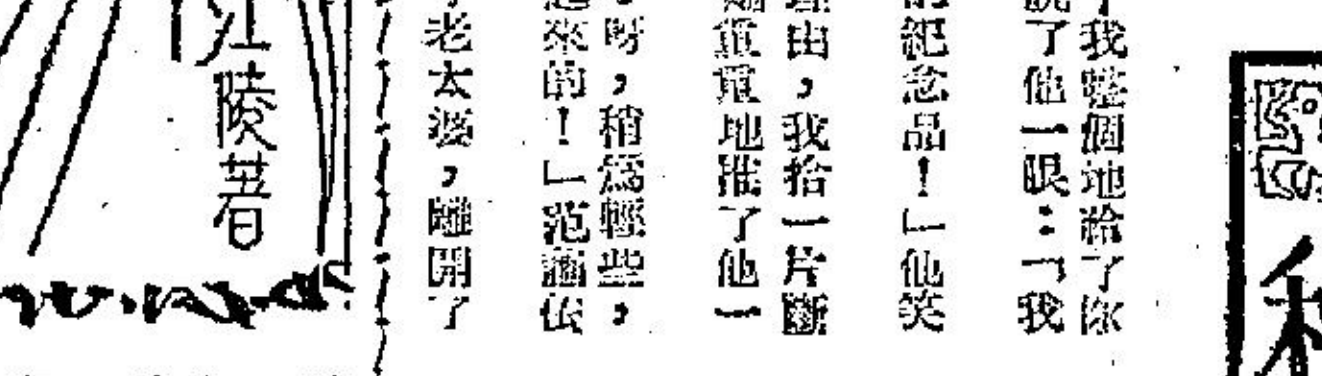 我整個地給了你
了他一眼：「我
紀念品！」他笑
由，我拾一片斷
重重地推了他一
呀，稍為輕些，
來的！」范
老太婆，離開了
江陵著